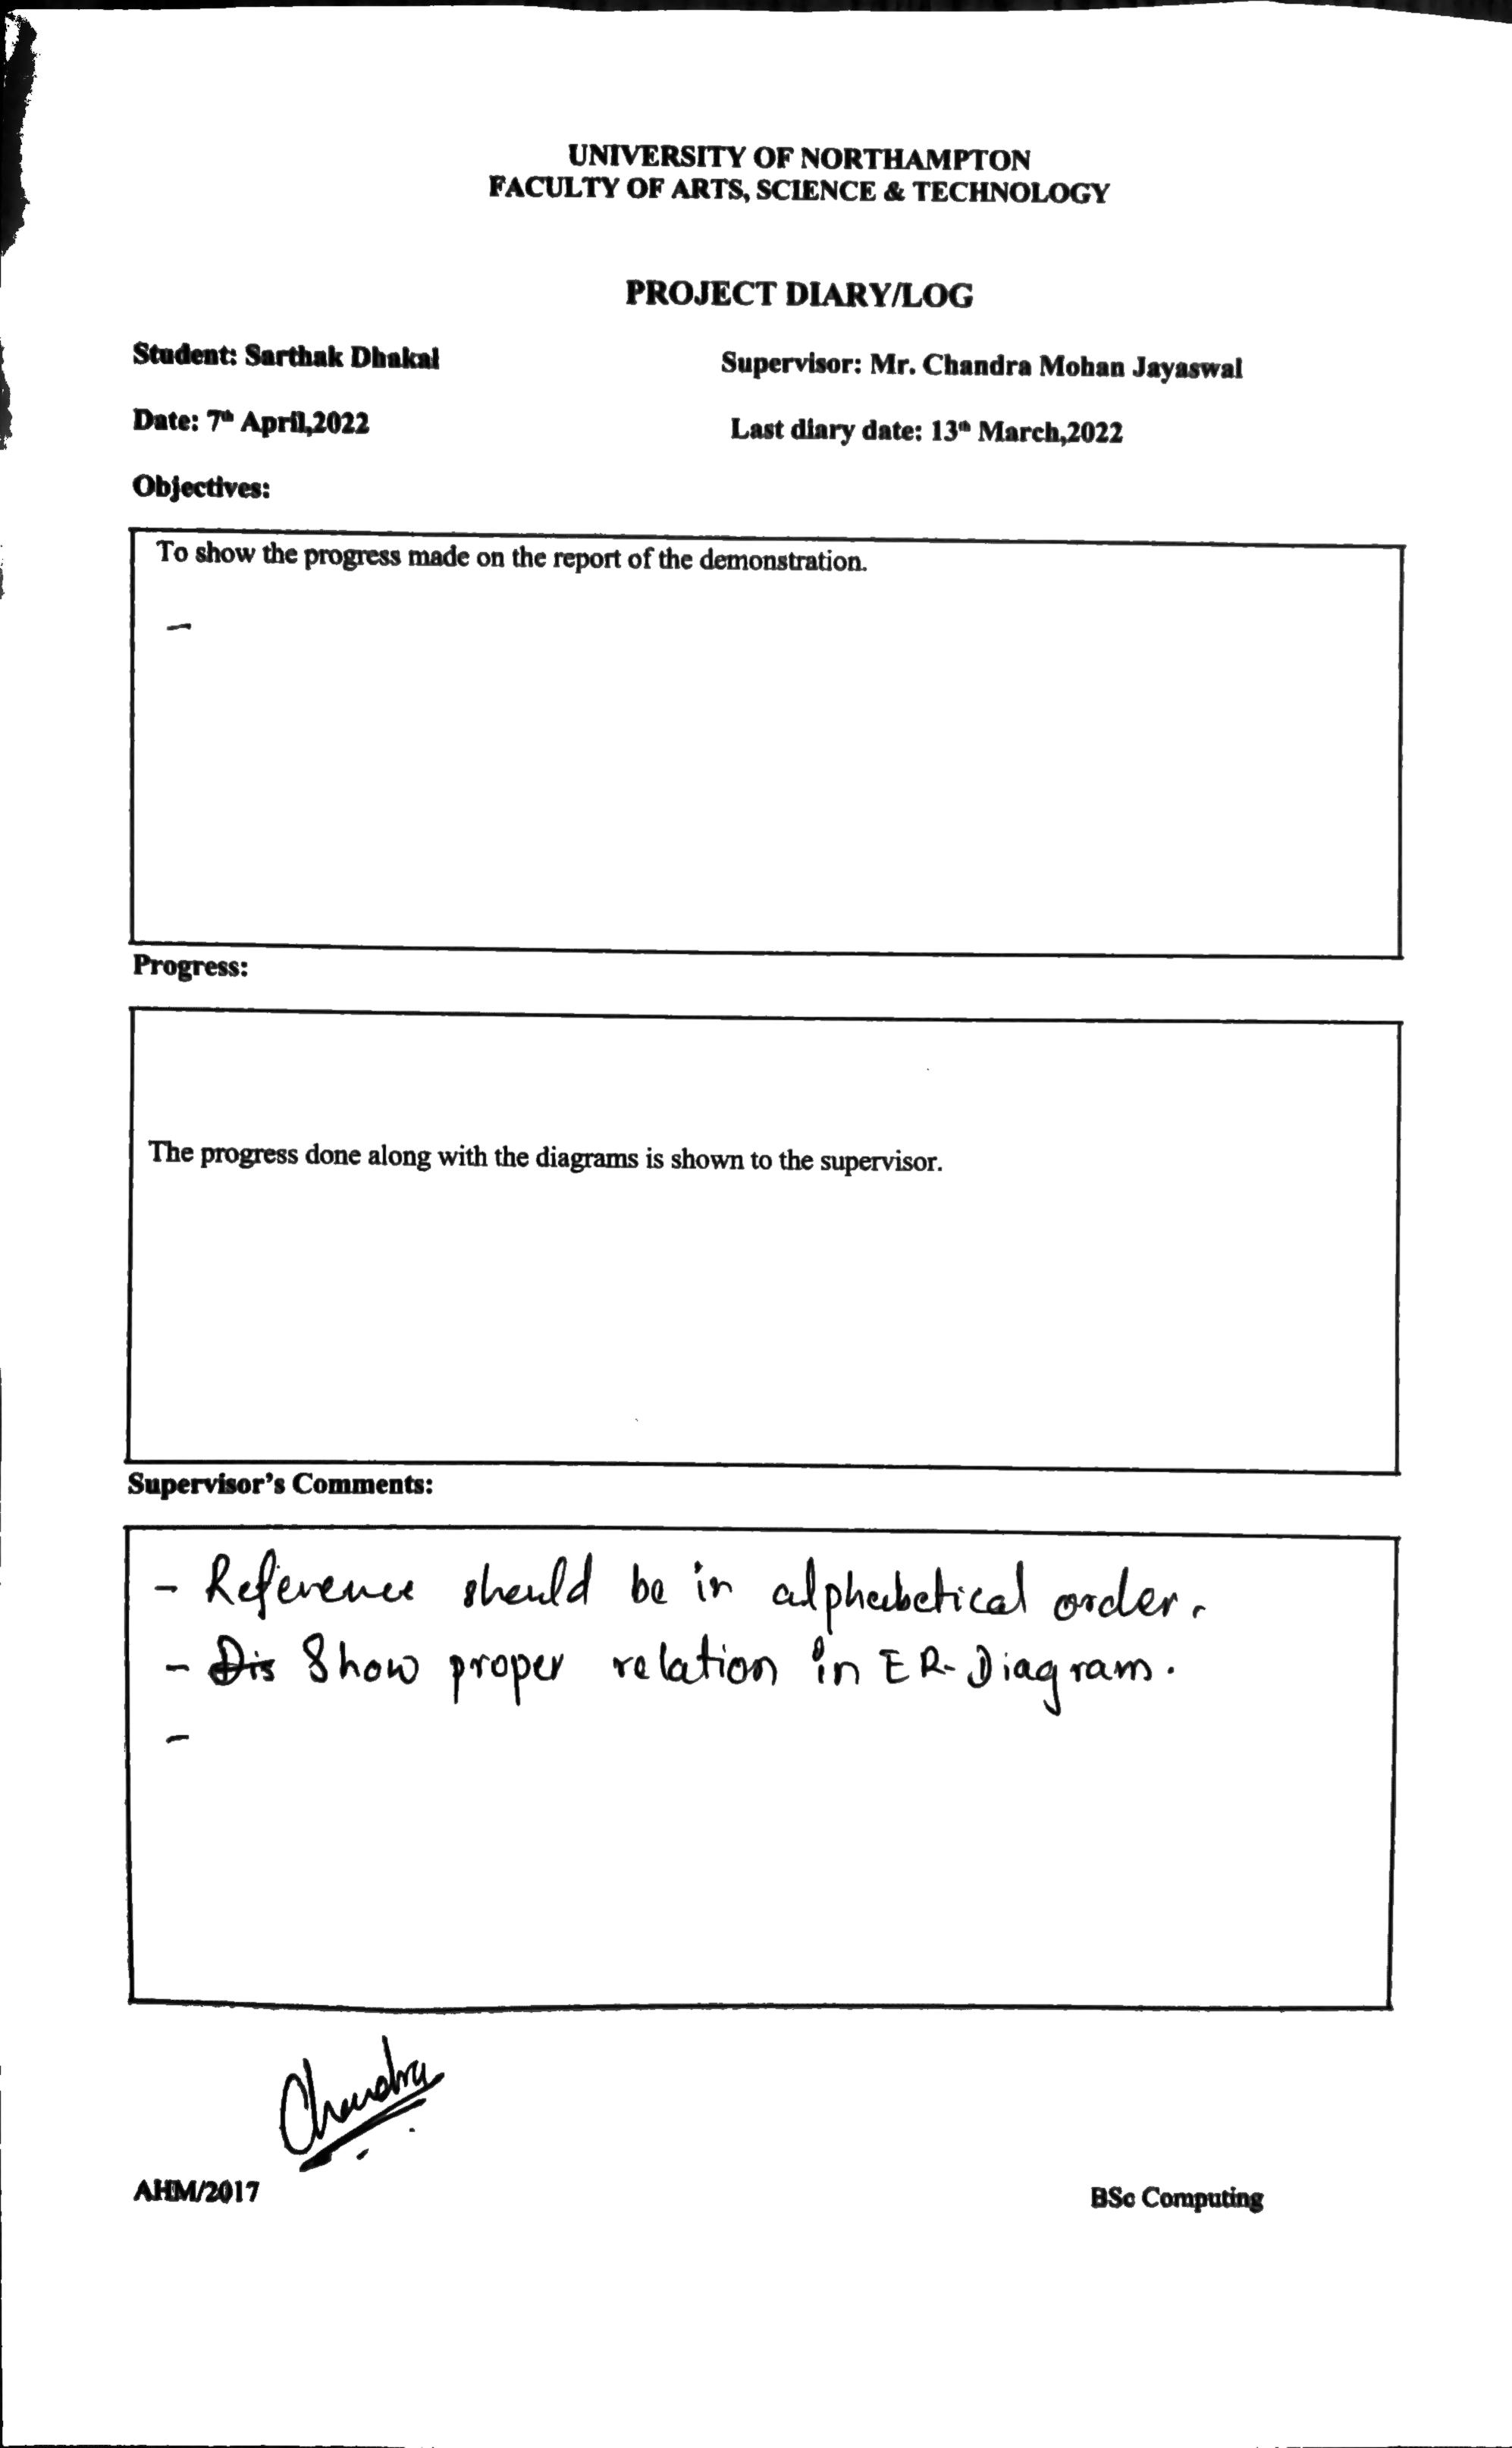 UNIVERSITY OF NORTHAMPTON
FACULTY OF ARTS, SCIENCE & TECHNOLOGY
PROJECT DIARY/LOG
Student: Sarthak Dhakal
Supervisor: Mr. Chandra Mohan Jayaswal
Date: 7th April,2022
Last diary date: 13th March,2022
Objectives:
To show the progress made on the report of the demonstration.
-
Progress:
The progress done along with the diagrams is shown to the supervisor.
Supervisor's Comments:
- Reference should be in alphabetical order.
- Dis Show proper relation in ER-Diagram.
-
Chandra
AHM/2017
BSc Computing